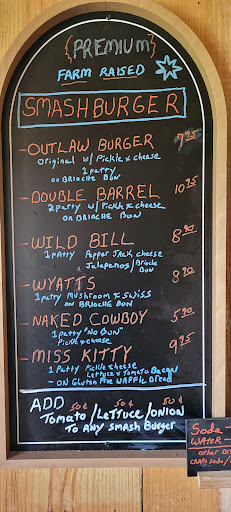 {PREMIUM}
FARM RAISED
SMASHBURGER
-OUTLAW BURGER 7.95
original w/ Pickle & cheese
1 patty
on BRIOCHE BUN
-DOUBLE BARREL 10.95
2 patty w/ Pickle & cheese
on BRIOCHE BUN
-WILD BILL 8.90
1 patty Pepper Jack, cheese
& Jalapenos/Brioche
Bun
-WYATTS 8.90
1 patty Mushroom & swiss
on BRIOCHE BUN
-NAKED COWBOY 5.90
1 patty "No Bun"
Pickle & cheese
-MISS KITTY 9.25
1 Patty Pickle cheese
Lettuce & Tomato Bacon
- ON Gluten Free WAFFle Bread
ADD 50¢ 50¢ 50¢
Tomato/Lettuce/onion
To Any smash Burger
Soda -
WATER -
other
CRAFT Soda